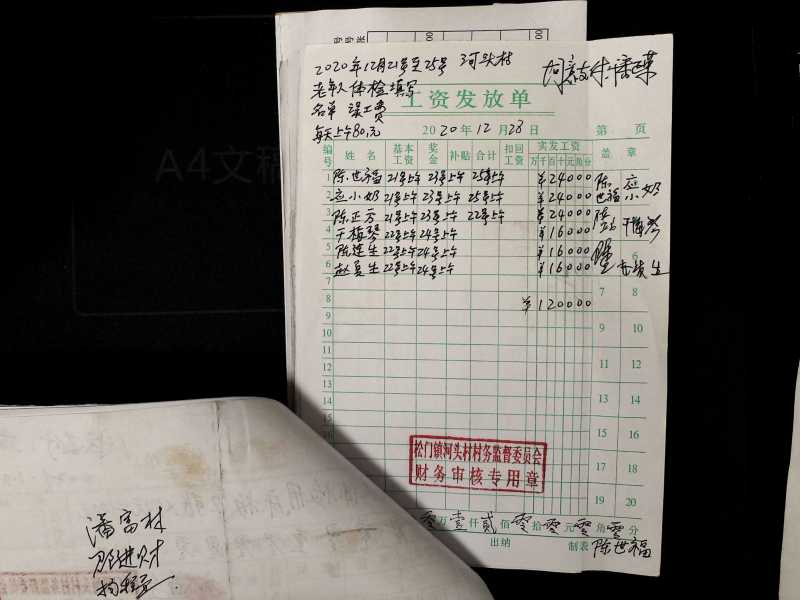 2020年12月21号至25号 河头村
老年人体检填写
名单 误工费
每天上午80元
工资发放单
2020年12月28日 第 页
编号 姓名 基本工资 奖金 补贴 合计 扣回工资 实发工资 盖章
万千百十元角分
1 陈世福 21号上午 23号上午 25号上午 ¥24000 陈世福 应小奶
2 应小奶 21号上午 23号上午 25号上午 ¥24000
3 陈正方 21号上午 23号上午 22号上午 ¥24000
4 于梅琴 22号上午 24号上午 ¥16000
5 陈连生 22号上午 24号上午 ¥16000
6 赵夏生 22号上午 24号上午 ¥16000 6
7 7 8
8 ¥120000
9 9 10
10
11 11 12
12
13 13 14
14
15 15 16
16
17 17 18
18
19 19 20
20
松门镇河头村村务监督委员会
财务审核专用章
零万壹仟贰佰零拾零元零角零分
出纳 制表 陈世福
潘富林
A4文稿